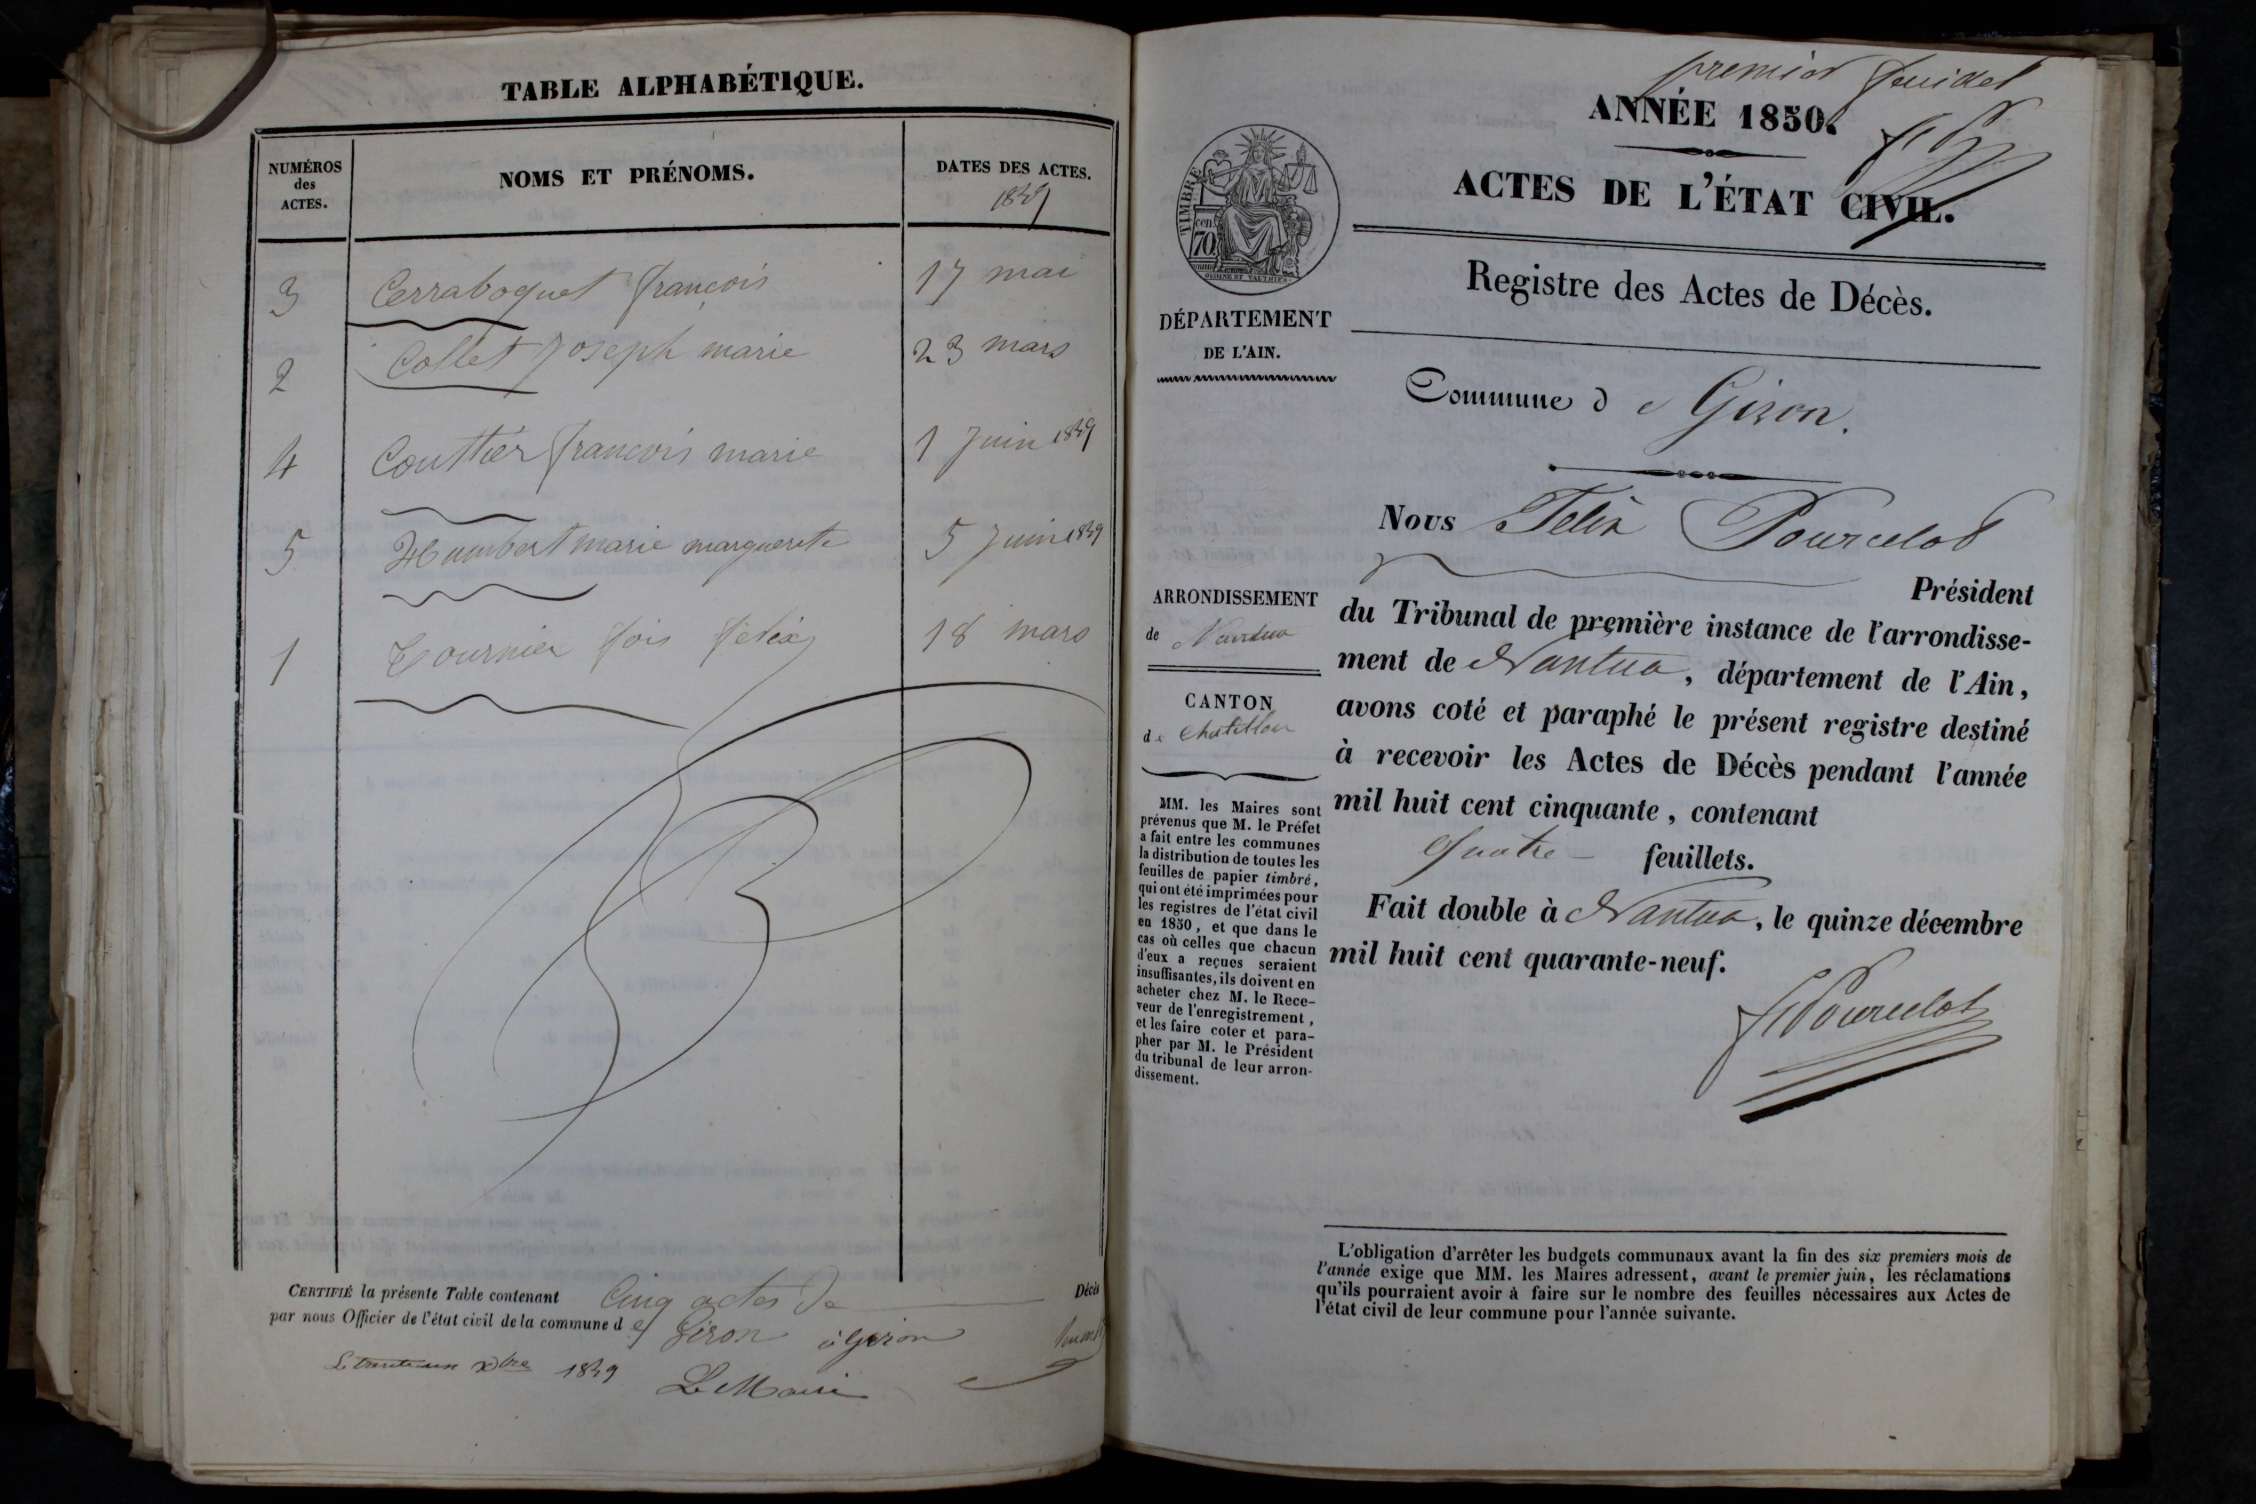 TABLE ALPHABÉTIQUE.
NUMÉROS
des
ACTES.
NOMS ET PRÉNOMS.
DATES DES ACTES.
1849
3 Cerraboquet françois 17 mai
2 Collet Joseph marie 23 mars
4 Couttier françois marie 1 Juin 1849
5 Humbert marie marguerite 5 Juin 1849
1 Tournier fois félix 18 mars
CERTIFIÉ la présente Table contenant Cinq actes de Décès
par nous Officier de l'état civil de la commune de Giron à Giron
Le trente un xbre 1849
Le Maire
premier feuillet
ANNÉE 1850.
ACTES DE L'ÉTAT CIVIL.
TIMBRE
cen.
70
Registre des Actes de Décès.
DÉPARTEMENT
DE L'AIN.
Commune de Giron.
Nous Félix Pourcelot
Président
du Tribunal de première instance de l'arrondisse-
ment de Nantua, département de l'Ain,
avons coté et paraphé le présent registre destiné
à recevoir les Actes de Décès pendant l'année
mil huit cent cinquante, contenant
quatre feuillets.
Fait double à Nantua, le quinze décembre
mil huit cent quarante-neuf.
Pourcelot
ARRONDISSEMENT
de Nantua
CANTON
de Chatillon
MM. les Maires sont
prévenus que M. le Préfet
a fait entre les communes
la distribution de toutes les
feuilles de papier timbré,
qui ont été imprimées pour
les registres de l'état civil
en 1850, et que dans le
cas où celles que chacun
d'eux a reçues seraient
insuffisantes, ils doivent en
acheter chez M. le Rece-
veur de l'enregistrement,
et les faire coter et para-
pher par M. le Président
du tribunal de leur arron-
dissement.
L'obligation d'arrêter les budgets communaux avant la fin des six premiers mois de
l'année exige que MM. les Maires adressent, avant le premier juin, les réclamations
qu'ils pourraient avoir à faire sur le nombre des feuilles nécessaires aux Actes de
l'état civil de leur commune pour l'année suivante.